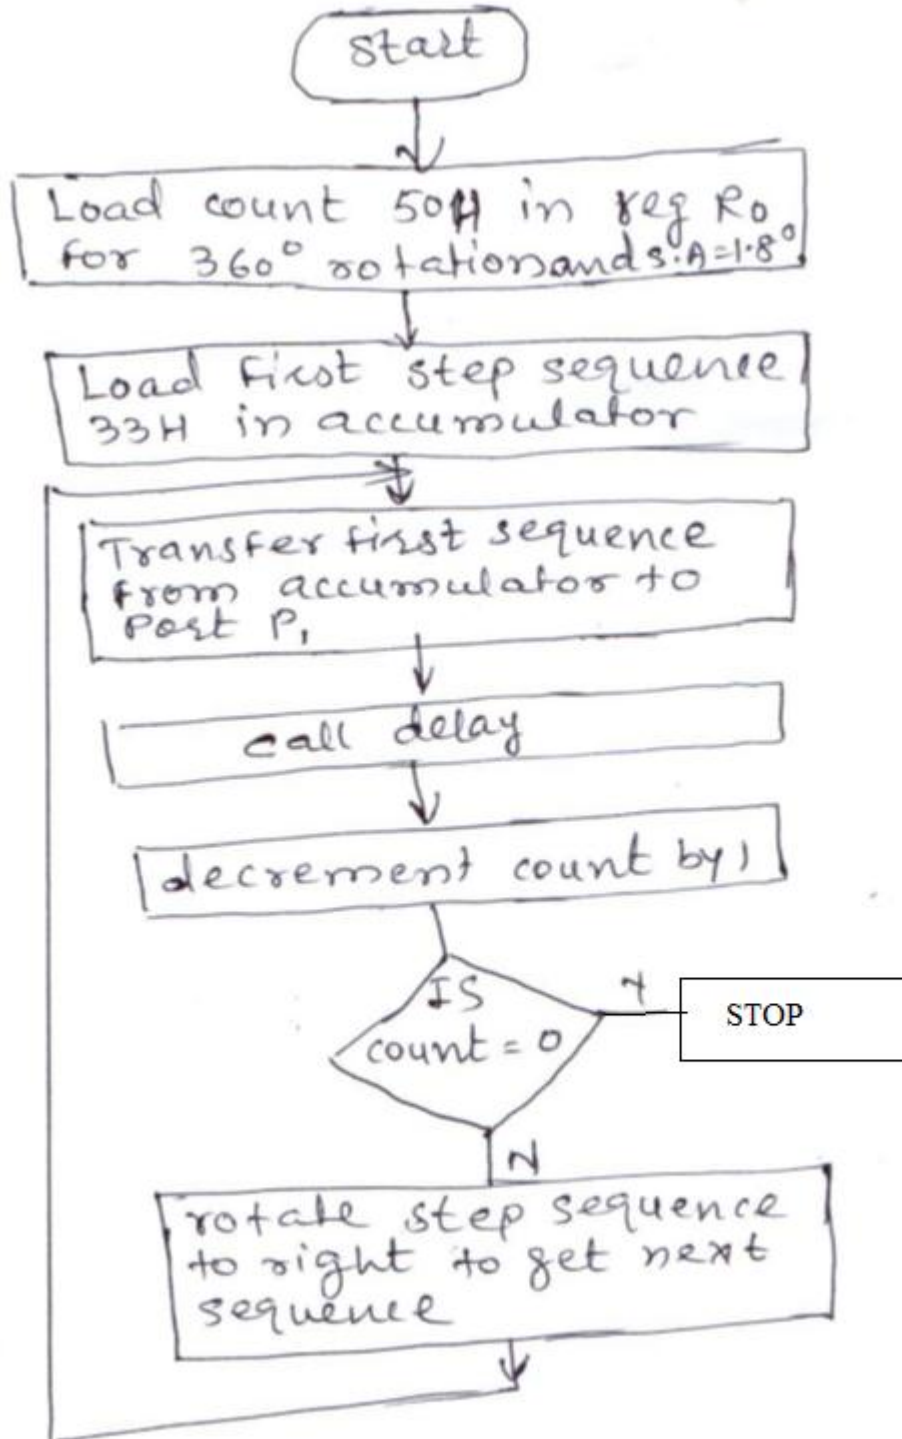 start
Load count 50H in reg R0
for 360° rotation and S.A=1.8°
Load first step sequence
33H in accumulator
Transfer first sequence
from accumulator to
Port P1
call delay
decrement count by 1
IS
count = 0
Y
STOP
N
rotate step sequence
to right to get next
sequence